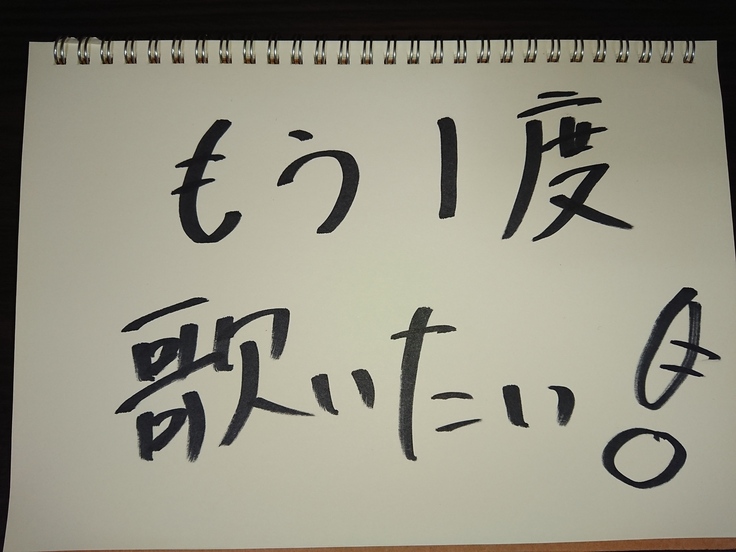 もう1度
歌いたい!